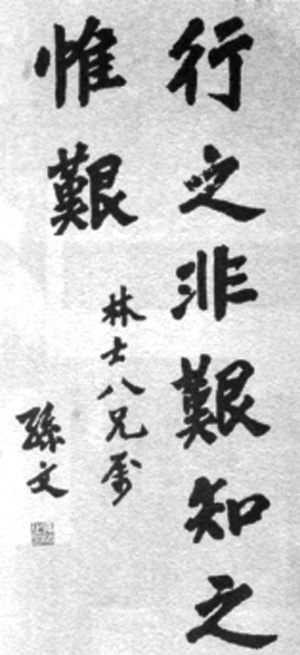 行之非艱知之
惟艱
林士八兄屬
孫文